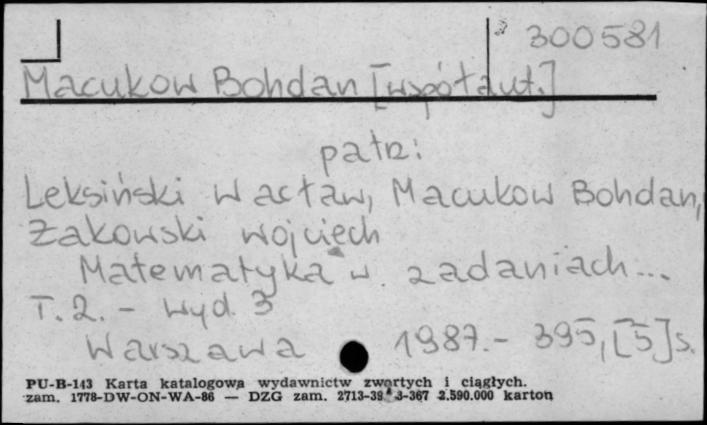 300581
Macukow Bohdan [współaut.]
patrz:
Leksiński Wacław, Macukow Bohdan,
Żakowski Wojciech
Matematyka w zadaniach...
T. 2. - Wyd. 3
Warszawa 1987.- 395, [5] s.
PU-B-143 Karta katalogowa wydawnictw zwartych i ciągłych.
zam. 1778-DW-ON-WA-86 — DZG zam. 2.590.000 karton